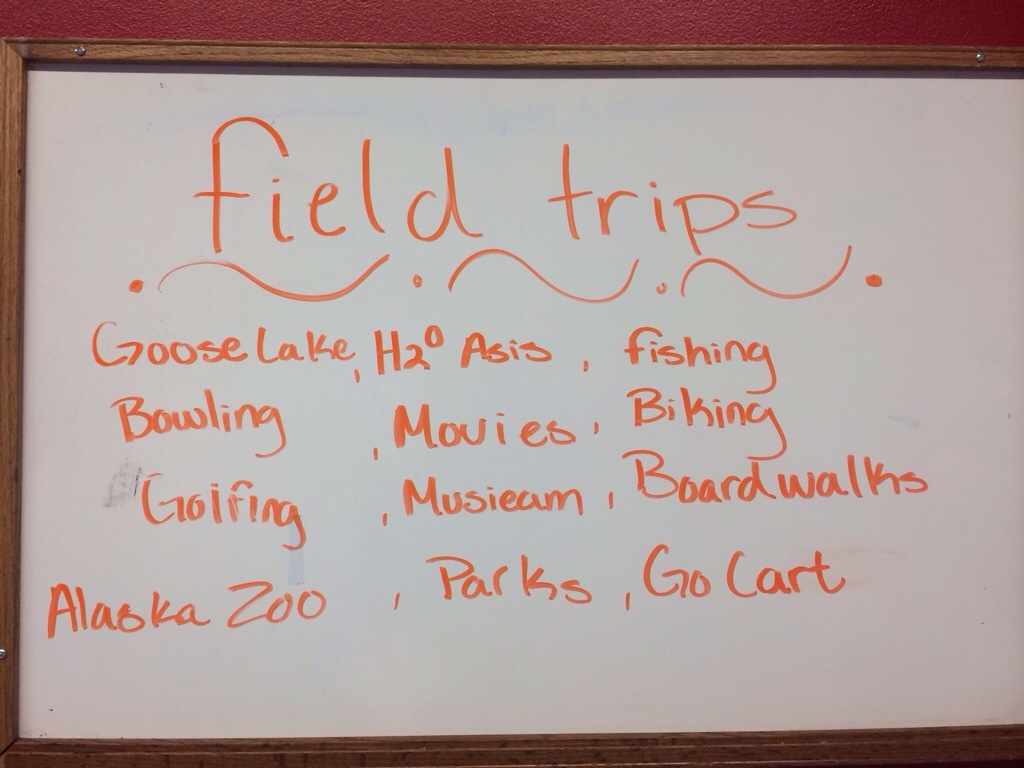 field trips
Goose Lake, H2O Asis, fishing
Bowling, Movies, Biking
Golfing, Musieam, Boardwalks
Alaska Zoo, Parks, Go Cart